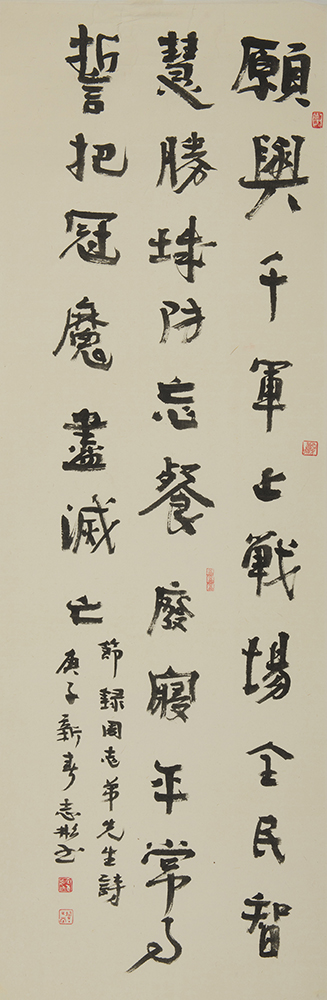 願與千軍上戰場全民智
慧勝城防忘餐廢寢年常事
誓把冠魔盡滅亡
節録周志第先生詩
庚子新春志彬书